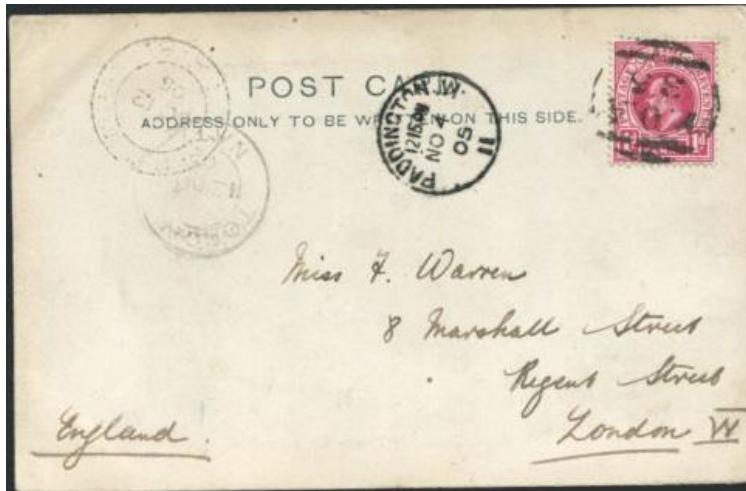 POST CARD.
ADDRESS ONLY TO BE WRITTEN ON THIS SIDE.
PADDINGTON. W.
12 15 PM
NO 4
05
11
POSTAGE REVENUE
1d 1d
Miss F. Warren
8 Marshall Street
Regent Street
London W
England.